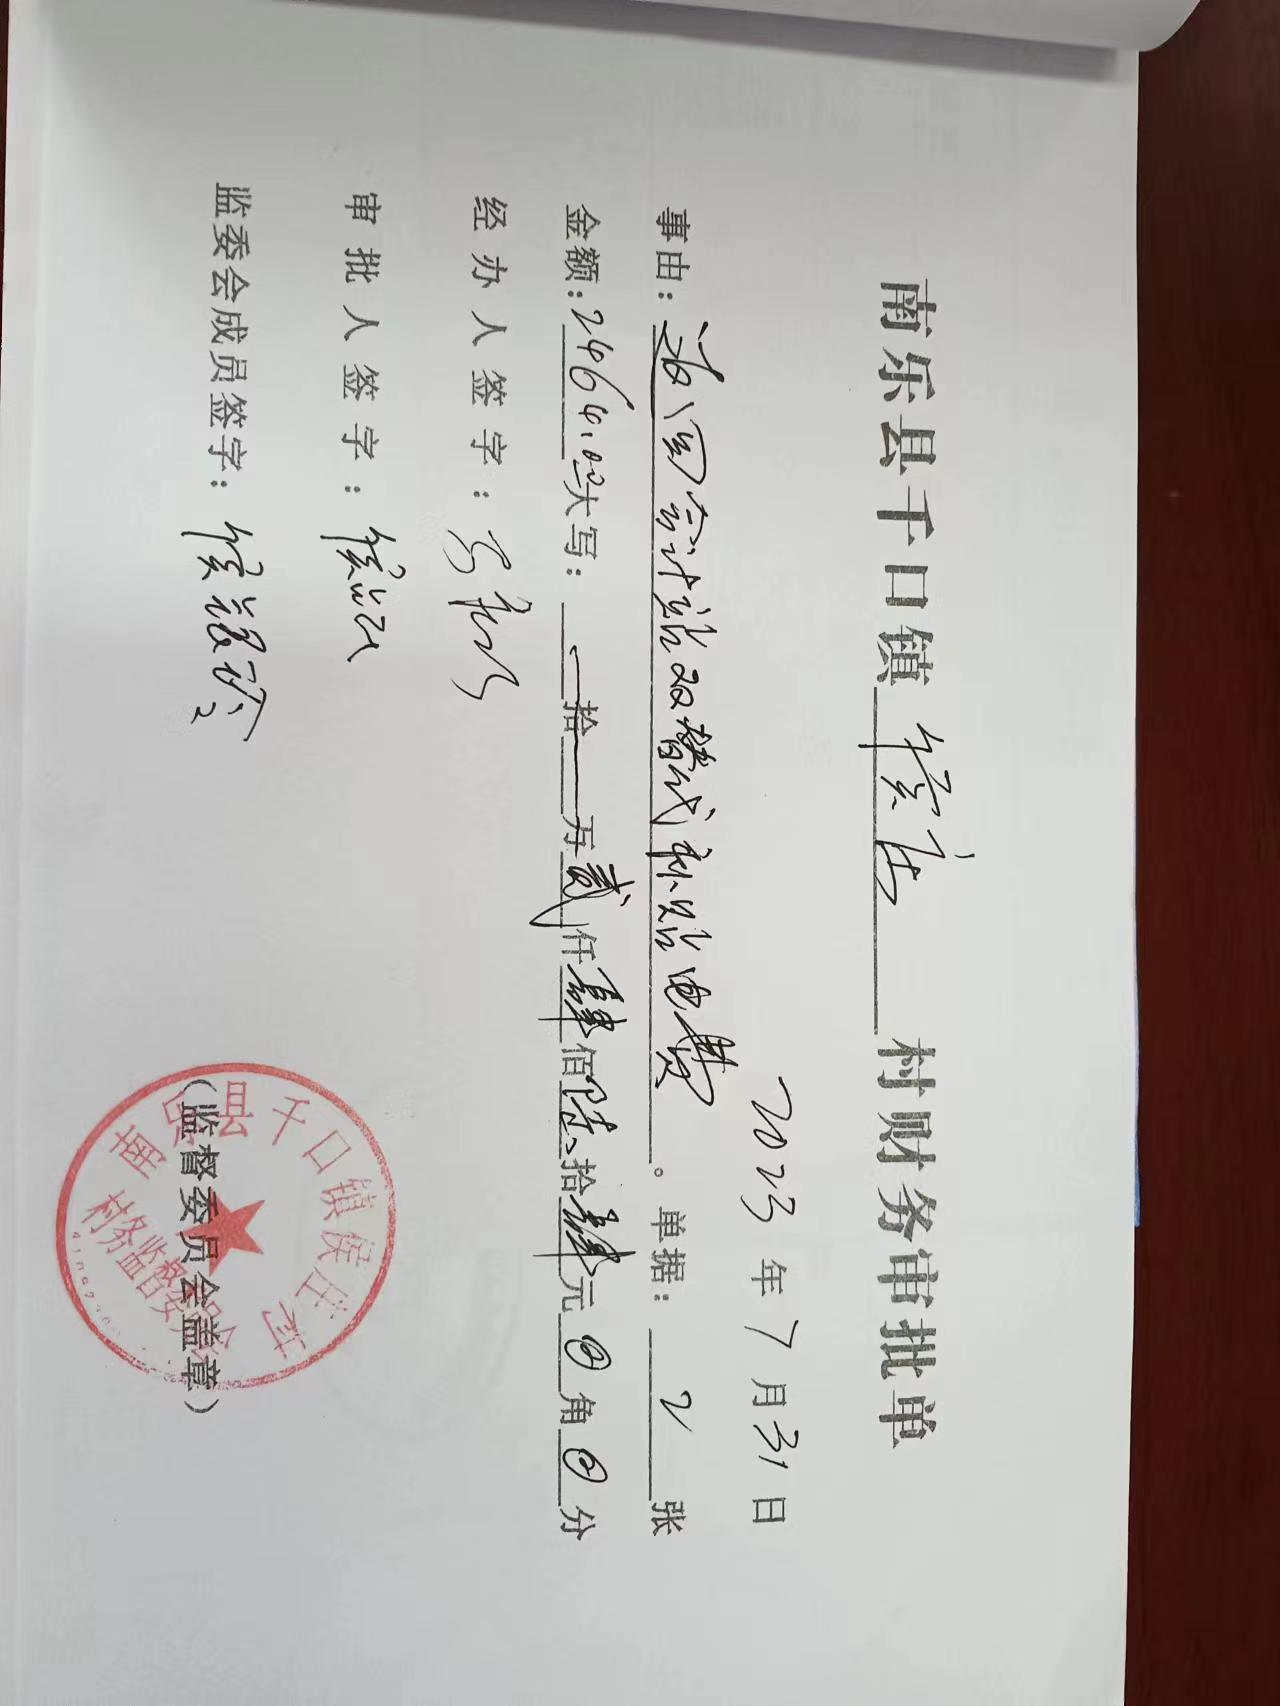 南乐县千口镇 侯庄 村财务审批单
2023 年 7 月 31 日
事由：退回会计站双替代补贴电费。单据：2 张
金额：2464.00 大写：拾 万 贰 仟 肆 佰 陆 拾 肆 元 0 角 0 分
经办人签字：
审批人签字：侯
监委会成员签字：侯
（监督委员会盖章）
南乐县千口镇侯庄村
村务监督委员会